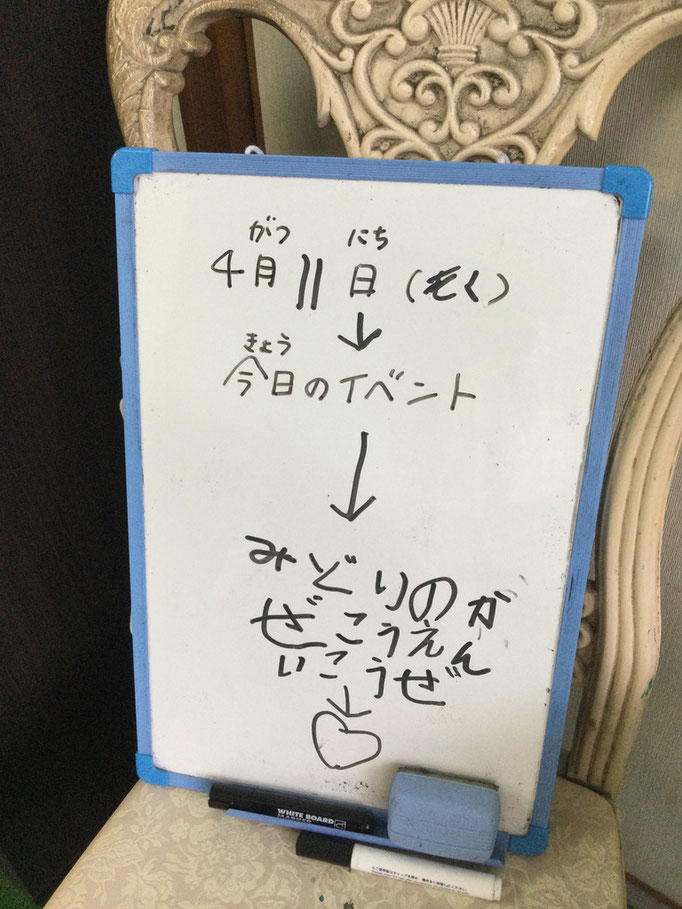 がつ にち
4月11日(もく)
↓
きょう
今日のイベント
↓
みどりのか
ぜこうえん
いこうぜ
↓
WHITE BOARD
MARKER